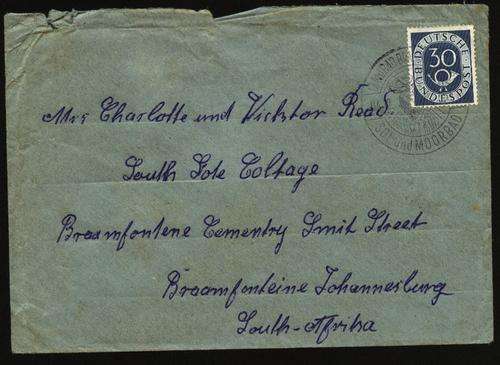 Mrs Charlotte und Vickstor Read
South Gote Coltage
Braamfontene Cementry Smit Street
Braamfonteine Johannesburg
South-Afrika
DEUTSCHE BUNDESPOST
30
und MOORBAD